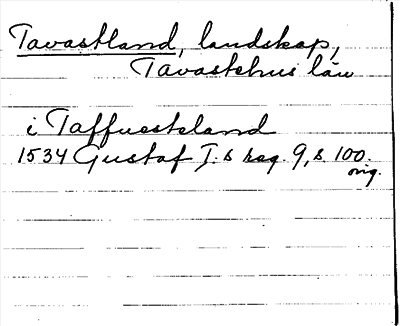 Tavastland, landskap,
Tavastehus län
i Taffuesteland
1534 Gustaf I:s reg. 9, s. 100.
orig.